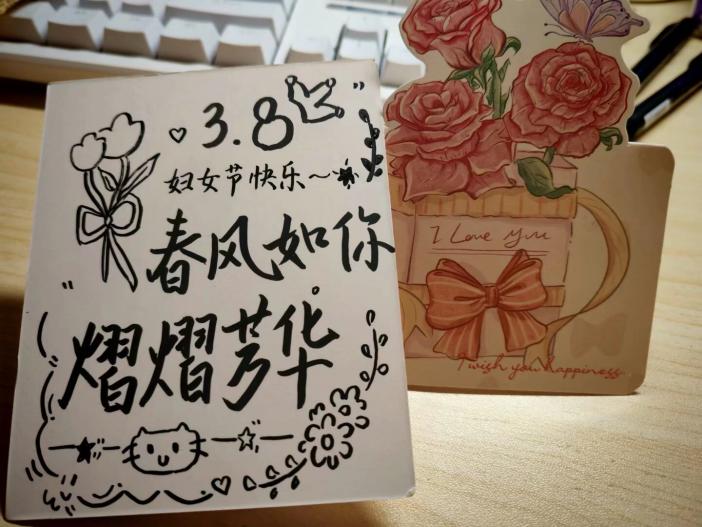 3.8
妇女节快乐~
春风如你
熠熠芳华
I Love You
I wish you happiness.